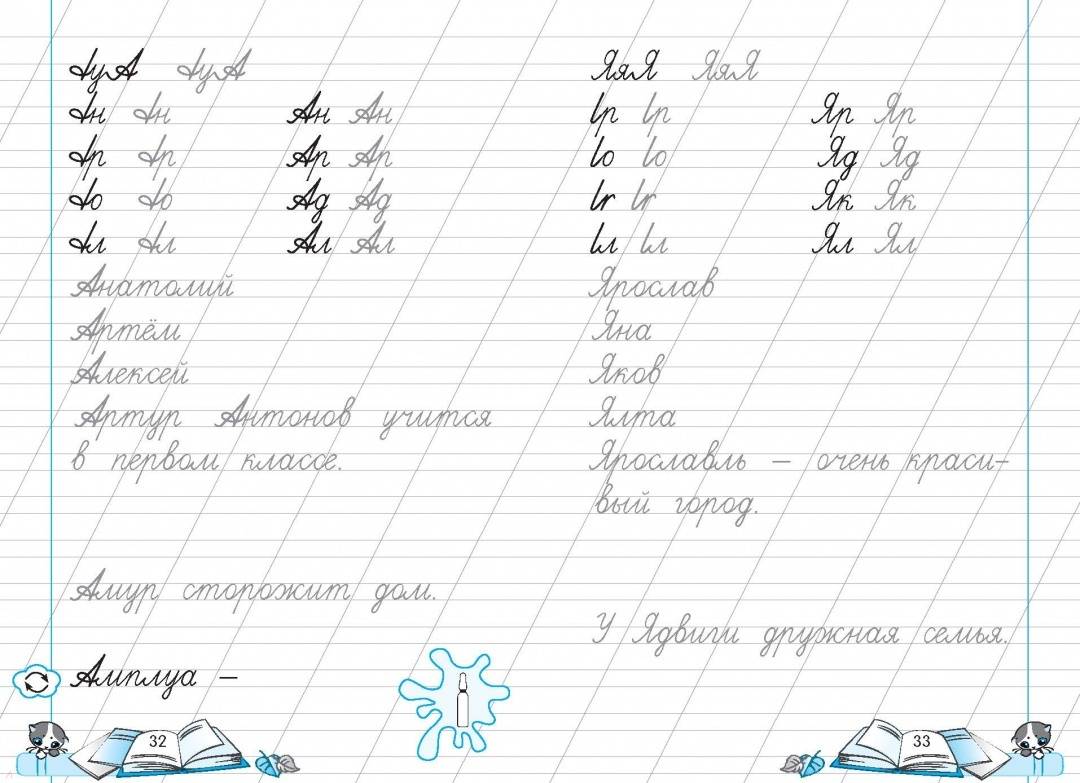 Ан Ан Ан
Ар Ар
Ад Ад
Ал Ал
Анатолий
Артём
Алексей
Артур Антонов учится
в первом классе.
Амур сторожит дом.
Амплуа –
32
ЯяЯ ЯяЯ
Яр Яр
Яд Яд
Як Як
Ял Ял
Ярослав
Яна
Яков
Ялта
Ярославль – очень краси-
вый город.
У Ядвиги дружная семья.
33